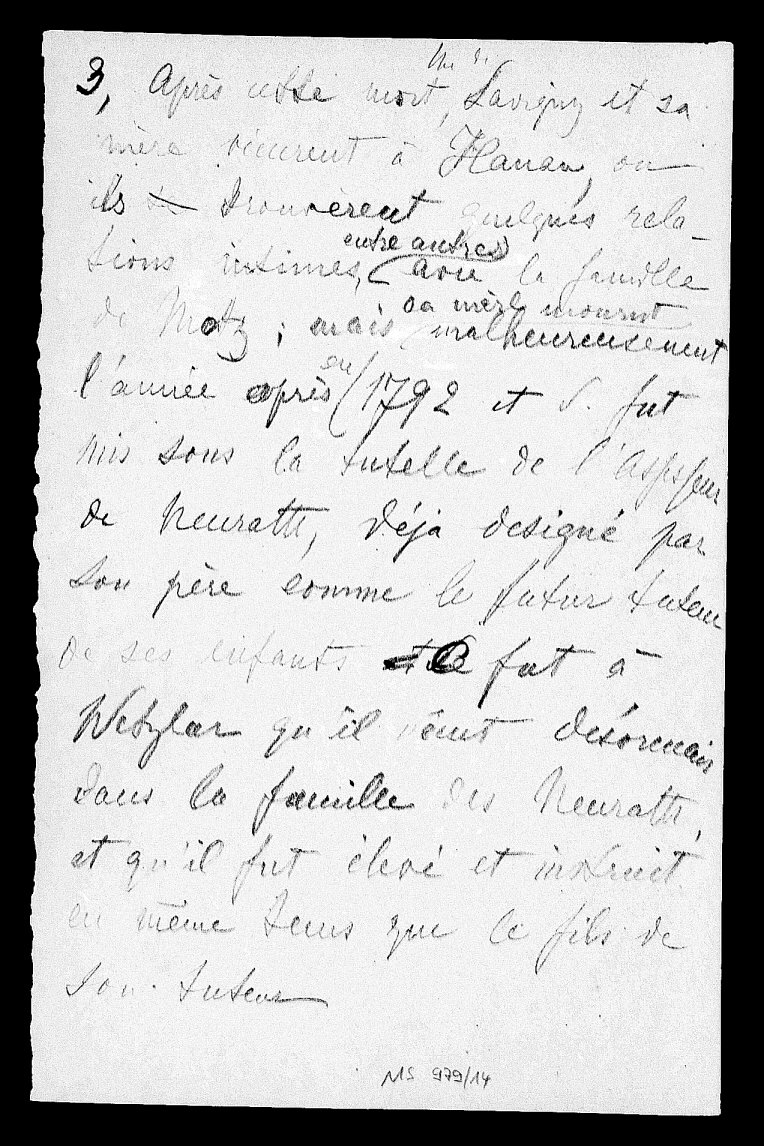 3, Après cette mort, Savigny et sa
mère vécurent à Hanau, où
ils trouvèrent quelques rela-
tions intimes, entre autres avec la famille
de Motz ; mais sa mère mourut malheureusement
l'année après en 1792 et S. fut
mis sous la tutelle de l'Assesseur
de Neurath, déja designé par
son père comme le futur tuteur
de ses enfants Ce fut à
Wetzlar qu'il vécut désormais
dans la famille des Neurath,
et qu'il fut élevé et instruit
en même tems que le fils de
son tuteur
MS 979/14